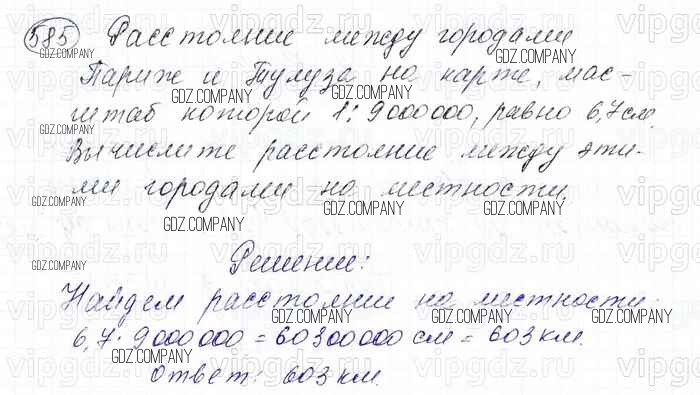 585 Расстояние между городами
Париж и Тулуза на карте, мас-
штаб которой 1:9000000, равно 6,7 см.
Вычислите расстояние между эти-
ми городами на местности.
Решение:
Найдем расстояние на местности:
6,7·9000000=60300000 см=603 км.
Ответ: 603 км.
vipgdz.ru
GDZ.COMPANY